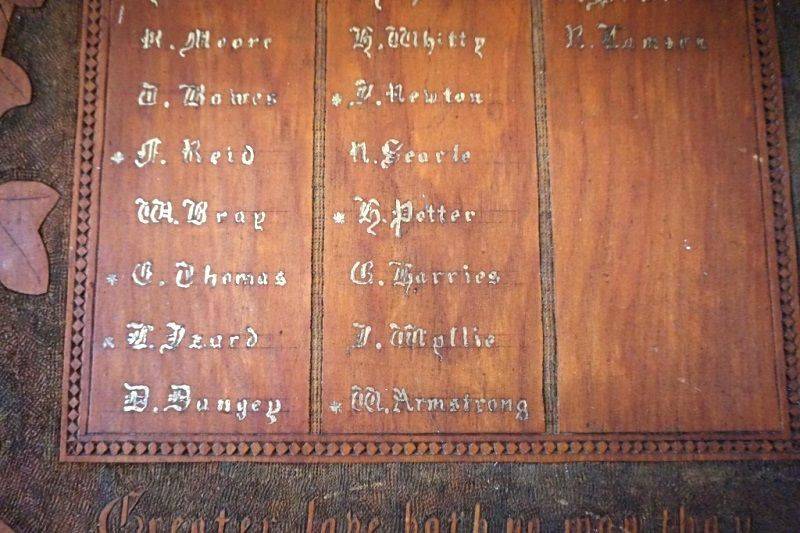 R. Moore
T. Bowes
* F. Reid
W. Bray
* C. Thomas
* L. Izard
D. Dungey
H. Whitty
* J. Newton
N. Searle
* H. Potter
G. Harries
J. Wyllie
* W. Armstrong
R. Lamson
Greater love hath no man than